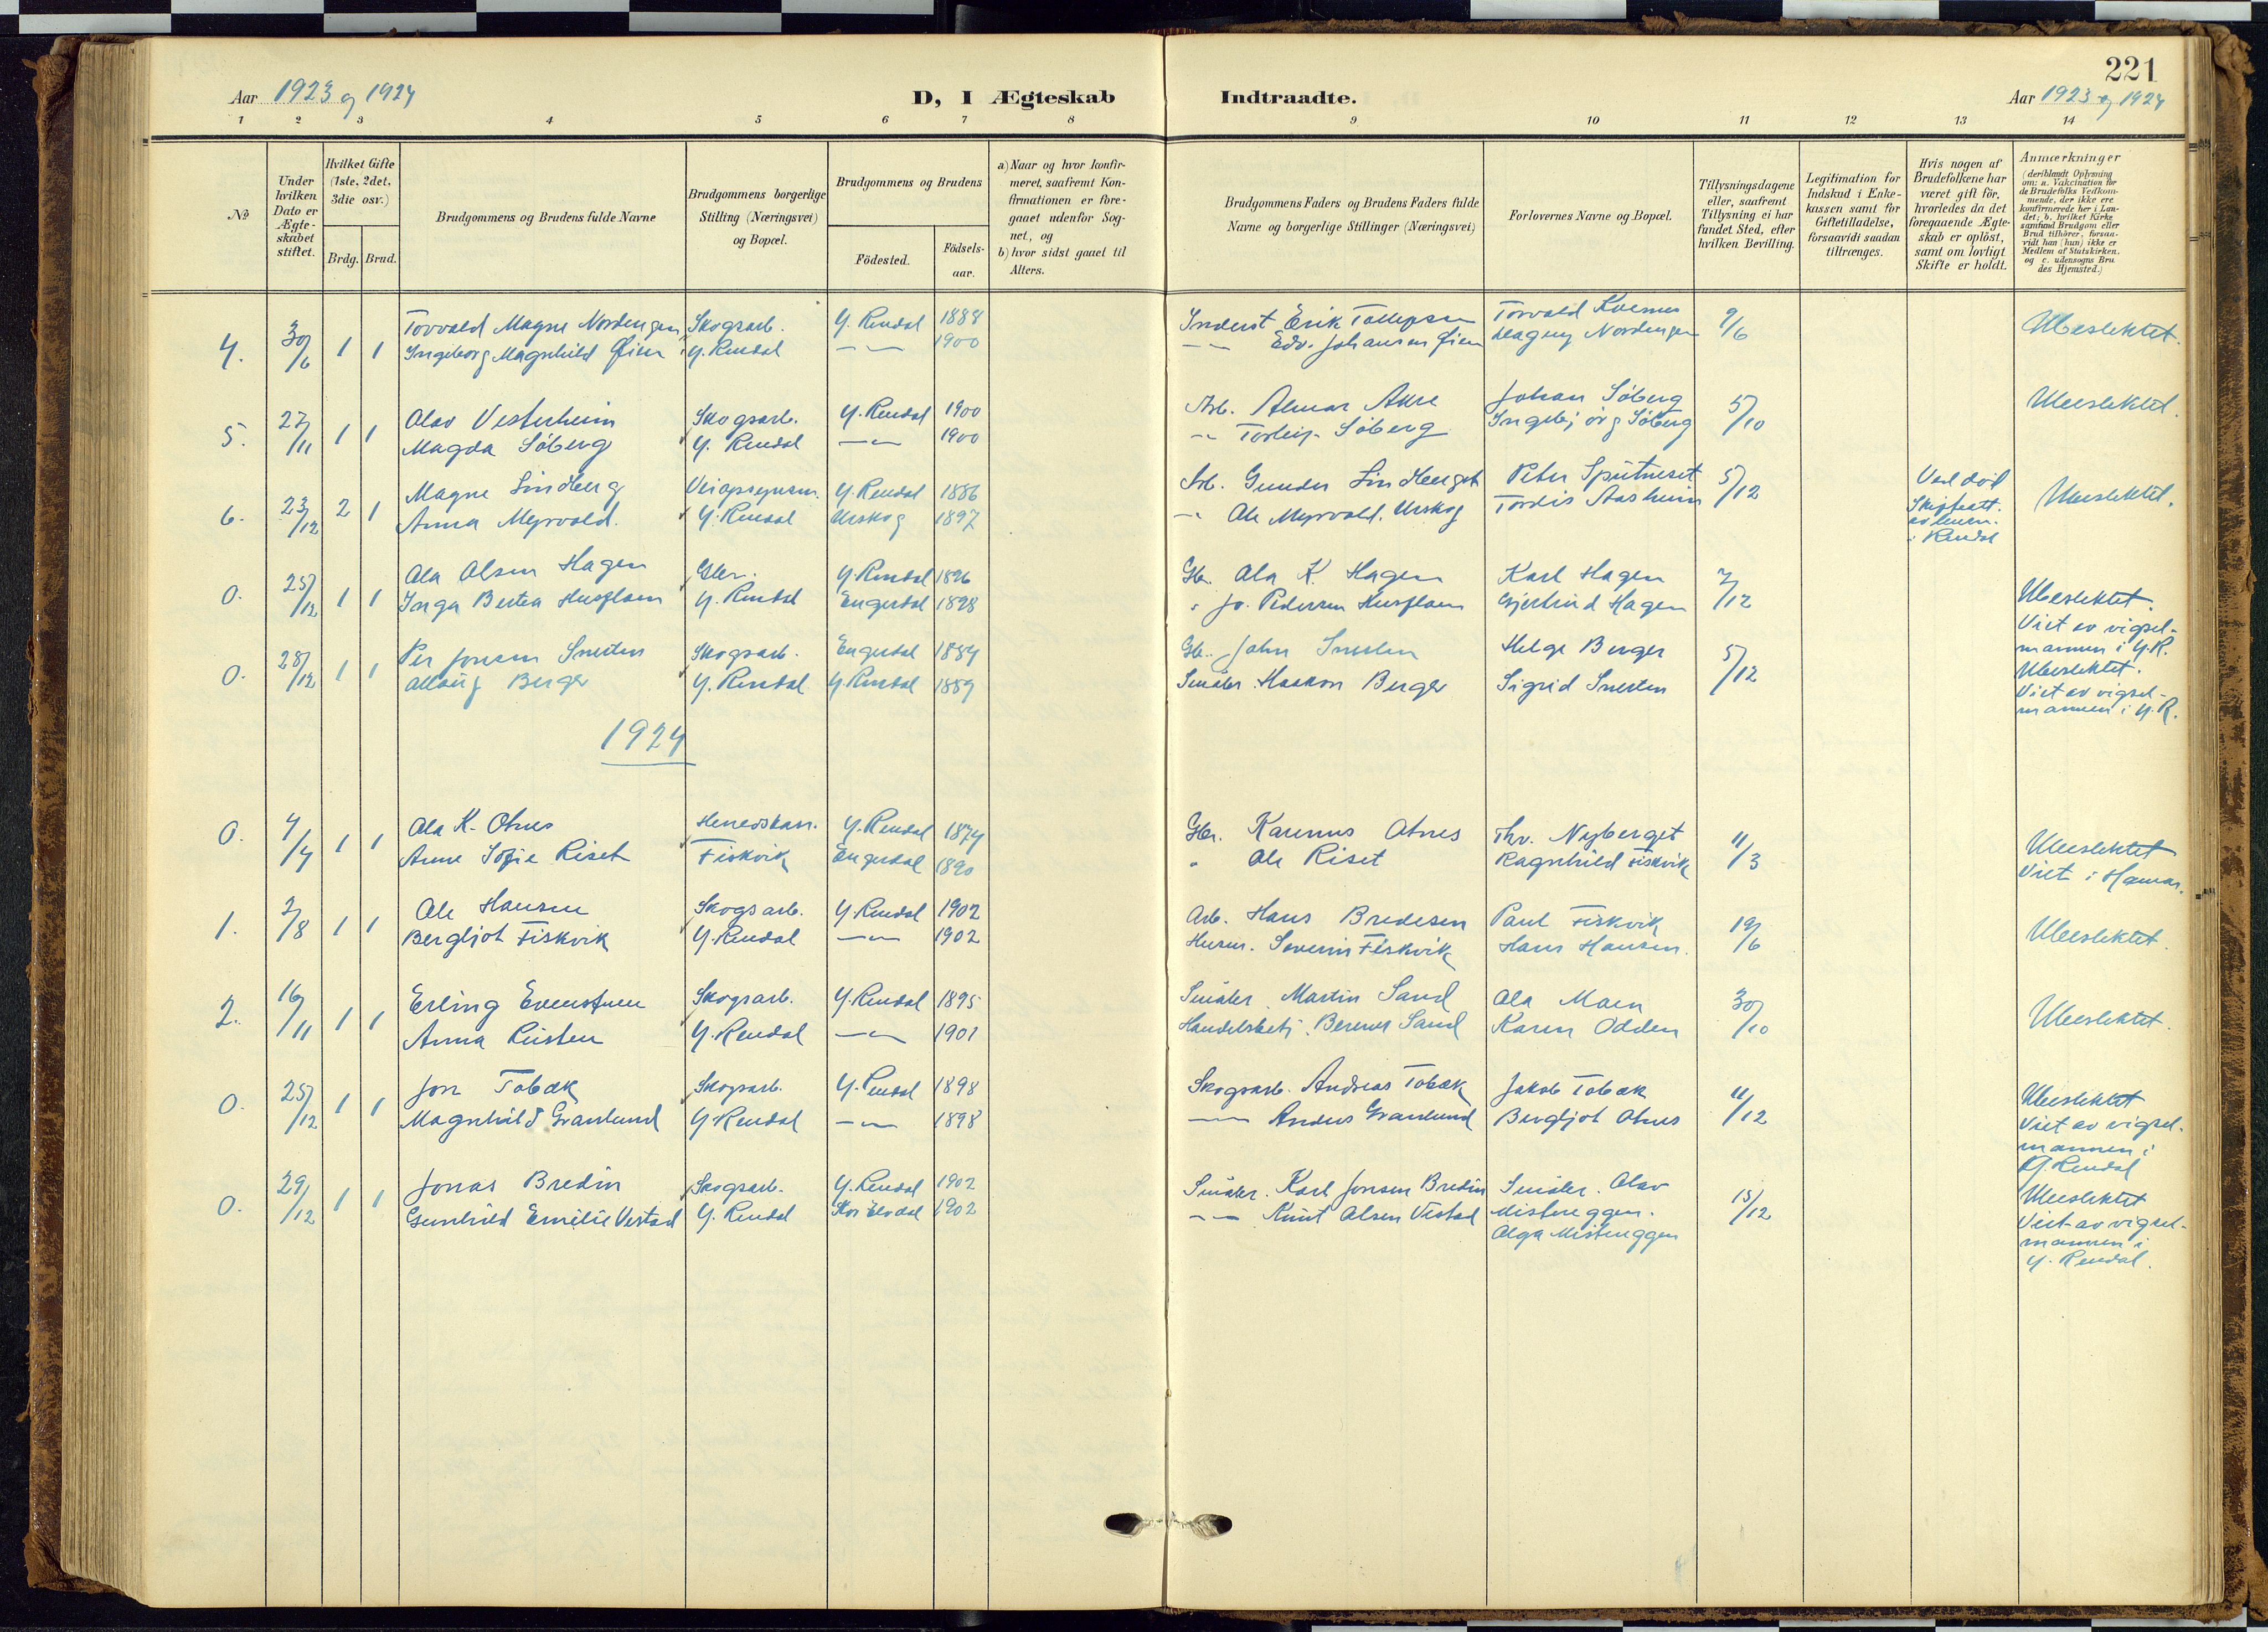 221
Aar 1923 og 1924
D, I Ægteskab
Indtraadte.
Aar 1923 og 1924
1 2 3 4 5 6 7 8 9 10 11 12 13 14
No
Under hvilken Dato er Ægteskabet stiftet.
Hvilket Gifte (1ste, 2det, 3die osv.)
Brdg. Brud.
Brudgommens og Brudens fulde Navne
Brudgommens borgerlige Stilling (Næringsvei) og Bopæl.
Brudgommens og Brudens
Födested.
Födselsaar.
a) Naar og hvor konfirmeret, saafremt Konfirmationen er foregaaet udenfor Sognet, og
b) hvor sidst gaaet til Alters.
Brudgommens Faders og Brudens Faders fulde Navne og borgerlige Stillinger (Næringsvei)
Forlovernes Navne og Bopæl.
Tillysningsdagene eller, saafremt Tillysning ei har fundet Sted, efter hvilken Bevilling.
Legitimation for Indskud i Enkekassen samt for Giftetilladelse, forsaavidt saadan tiltrænges.
Hvis nogen af Brudefolkene har været gift för, hvorledes da det foregaaende Ægteskab er oplöst, samt om lovligt Skifte er holdt.
Anmærkninger (deriblandt Oplysning om: a. Vakcination for de Brudefolks Vedkommende, der ikke ere konfirmerede her i Landet; b. hvilket Kirkesamfund Brudgom eller Brud tilhører, forsaavidt han (hun) ikke er Medlem af Statskirken, og c. udensogns Brudes Hjemsted.)
4. 30/6 1 1 Torvald Magne Nordengen Skogsarb. Y. Rendal 1888 Inderst Erik Tollefsen Torvald Kværnes 9/6 Ubeslektet.
Ingeborg Magnhild Øien Y. Rendal -"- 1900 -"- Edv. Johansen Øien Magny Nordengen
5. 27/11 1 1 Olav Vesterheim Skogsarb. Y. Rendal 1900 Arb. Almar Akre Johan Söberg 5/10 Ubeslektet.
Magda Söberg Y. Rendal -"- 1900 -"- Torleif Söberg Ingebjörg Söberg
6. 23/12 2 1 Magne Lindberg Veiopsynsm. Y. Rendal 1886 Arb. Gunder Lindberget Peter 5/12 Ved död Ubeslektet.
Anna Myrvold. Y. Rendal Urskog 1897 -"- Ole Myrvold. Urskog Tordis Aasheim Skifteatt.
i Rendal
0. 25/12 1 1 Ola Olsen Hagen Gbr. Y. Rendal 1896 Gbr. Ola K. Hagen Karl Hagen 7/12 Ubeslektet.
Inga Bertea Husfloen Y. Rendal Engerdal 1898 " Jo. Pedersen Husfloen Gjertrud Hagen
Viet av vigselmannen i Y.R.
0. 28/12 1 1 Per Jonsen Snerten Skogsarb. Engerdal 1884 Gbr. John Snerten Helge Berger 5/12 Ubeslektet.
Allaug Berger Y. Rendal Y. Rendal 1889 Småbr. Haakon Berger Sigrid Snerten
Viet av vigselmannen i Y.R.
1924
0. 4/4 1 1 Ola K. Otnes Herredskass. Y. Rendal 1874 Gbr. Karenus Otnes Thv. Nyberget 11/3 Ubeslektet
Anne Sofie Riset Fiskvik Engerdal 1890 " Ole Riset Ragnhild Fiskvik
Viet i Hamar.
1. 2/8 1 1 Ole Hansen Skogsarb. Y. Rendal 1902 Arb. Hans Bredesen Paul Fiskvik 19/6 Ubeslektet.
Bergljot Fiskvik Y. Rendal -"- 1902 Husm. Severin Fiskvik Hans Hansen.
2. 16/11 1 1 Erling Evenstuen Skogsarb. Y. Rendal 1895 Småbr. Martin Sand Ola Moen 30/10 Ubeslektet.
Anna Y. Rendal -"- 1901 Handelsbetj. Sand Karen Odden
0. 25/12 1 1 Jon Tobæk Skogsarb. Y. Rendal 1898 Skogsarb. Andreas Tobæk Jakob Tobæk 11/12 Ubeslektet
Magnhild Granlund Y. Rendal -"- 1898 -"- Anders Granlund Bergljot Otnes
Viet av vigselmannen i Y. Rendal
0. 29/12 1 1 Jonas Bredin Skogsarb. Y. Rendal 1902 Småbr. Karl Jonsen Bredin Småbr. Olav 15/12 Ubeslektet
Gunhild Emilie Vestad Y. Rendal St. Elvdal 1902 -"- Knut Olsen Vestad Mistereggen.
Olga Mistereggen
Viet av vigselmannen i
Y. Rendal.